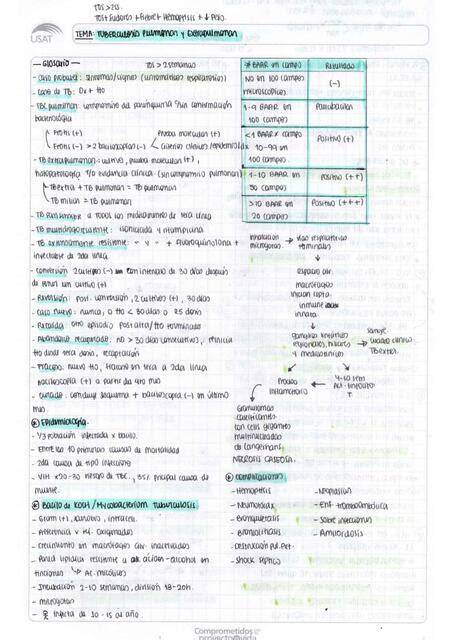 TOS >2s.
TOS + sudorac + fiebre + Hemoptisis + ↓ Peso.
USAT
TEMA: TUBERCULOSIS PULMONAR y EXTRAPULMONAR
— Glosario — TOS > 2 semanas
- Caso probable: síntomas/signos (sintomáticos respiratorios)
- Caso de TB: Dx + tto
- TBC pulmonar: compromiso del parénquima con confirmación
bacteriología
Frotis (+) Prueba molecular (+)
Frotis (-) > 2 baciloscopías (-) Criterios clínicos
- TB extrapulmonar: cultivo, prueba molecular (+),
histopatología y/o evidencia clínica (sin compromiso pulmonar)
TB extra + TB pulmon = TB pulmonar
TB miliar = TB pulmonar
- TB Pansensible a todos los medicamentos de 1era línea
- TB multidrogoresistente: isoniacida y rifampicina
- TB extremadamente resistente: " y " + fluoroquinolona +
inyectable de 2da línea
- Conversión: 2 cultivos (-) con intervalo de 30 días después
de tener un cultivo (+)
- Reversión: Post. conversión, 2 cultivos (+), 30 días
- Caso nuevo: nunca, o tto < 30 días o 25 dosis
- Recaída: otro episodio post alta/tto terminado
- Abandono recuperado: no > 30 días consecutivos, reinicia
tto desde 1era dosis, recaptación
- Fracaso: nuevo tto, fracaso en 1era a 2da línea
baciloscopía (+) a partir del 4to mes
- Curado: concluye esquema + baciloscopía (-) en último
mes.
# BAAR en campo Resultado
No en 100 campos
microscópicos (-)
1-9 BAAR en
100 campos Paucibacilar
<1 BAAR x campo
10-99 en
100 campos Positivo (+)
1-10 BAAR en
50 campos Positivo (++)
>10 BAAR en
20 campos Positivo (+++)
Inhalación → vías respiratorias
microgotas terminales
espacio alv.
macrófagos
inician rpta.
inmune
innata
ganglios linfáticos → sangre
regionales, hiliares
y mediastínicos cuadro clínico
TB extrap.
Proceso
inflamatorio
4-10 sem
Granulomas
caseificantes
con céls gigantes
multinucleadas
de Langerhans
NECROSIS CASEOSA.
Epidemiología
- 1/3 población infectada x bacilo.
- Entre las 10 primeras causas de mortalidad
- 2da causa de tipo infeccioso
- VIH x20-30 riesgo de TBC, principal causa de
muerte.
Bacilo de Koch / Mycobacterium Tuberculosis
- Gram (+), aerobio, intracel.
- Adherencia x inf. oxigenados
- Crecimiento en macrófagos alv. inactivados
- Pared lipídica resistente a acción - alcohol en
tinciones → Ac. micólicos
- Incubación 2-10 semanas, división 18-20h.
- microgotas
- infecta de 10-15 al año.
Complicaciones
- Hemoptisis
- Neumotórax
- Bronquiectasias
- Broncolitiasis
- Destrucción pul. Pat.
- Shock séptico
- Neoplasias
- Enf. tromboembólica
- Sobre infecciones
- Amiloidosis
Comprometidos
proyecto vida